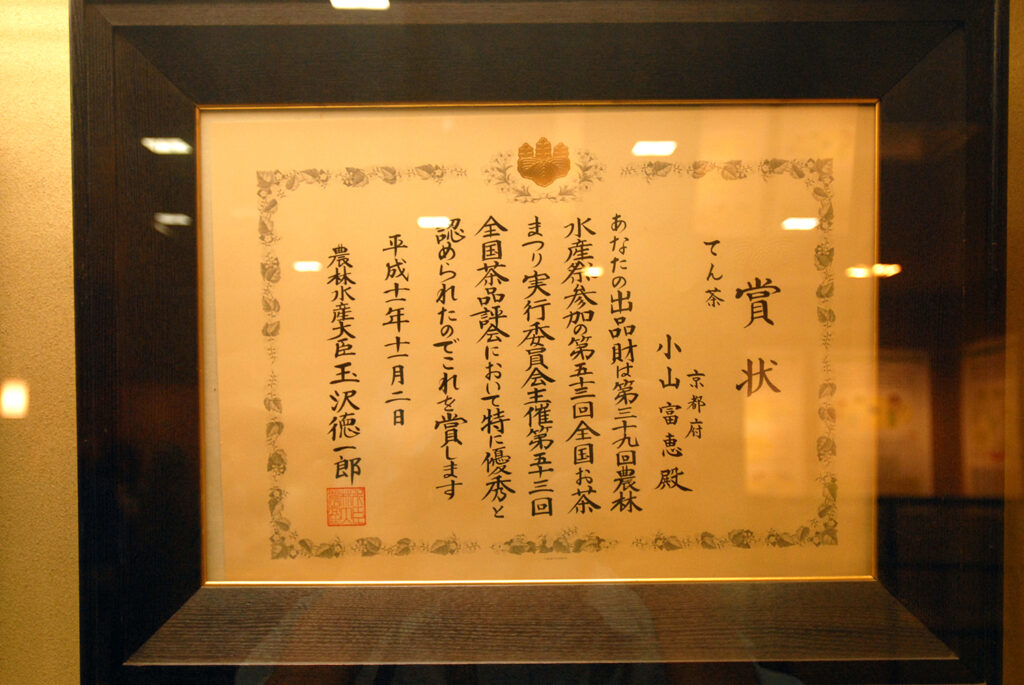 賞状
てん茶
京都府
小山富恵殿
あなたの出品財は第三十九回農林
水産祭参加の第五十三回全国お茶
まつり実行委員会主催第五十三回
全国茶品評会において特に優秀と
認められたのでこれを賞します
平成十一年十一月二日
農林水産大臣玉沢徳一郎